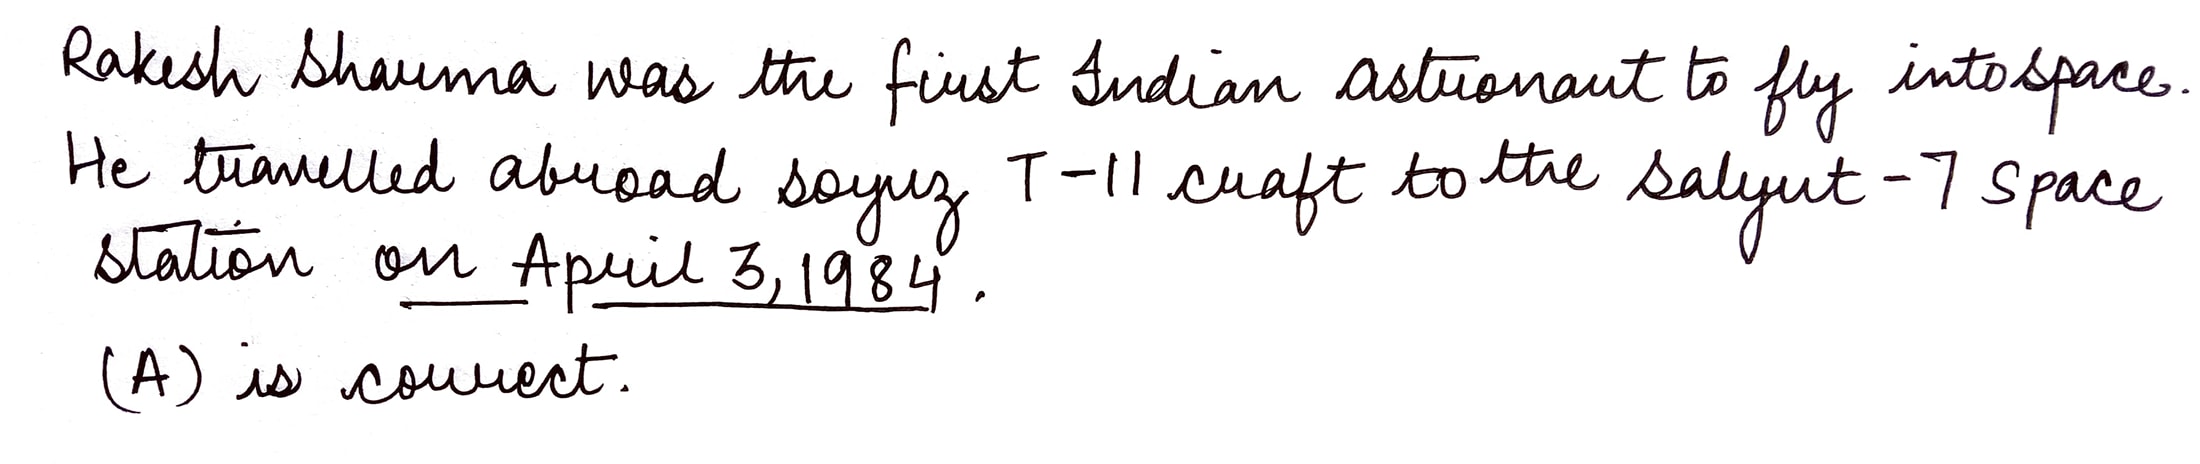 Rakesh Sharma was the first Indian astronaut to fly into space.
He travelled abroad soyuz T-11 craft to the salyut -7 space
station on April 3, 1984.
(A) is correct.